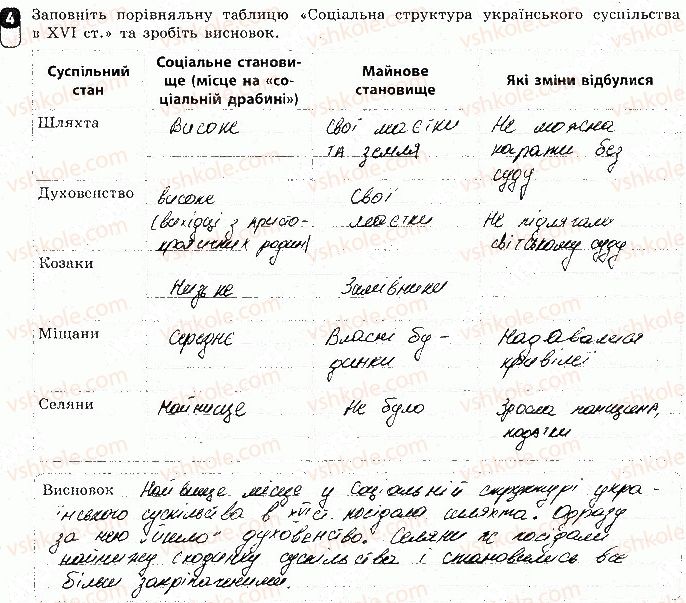 4 Заповніть порівняльну таблицю «Соціальна структура українського суспільства
в XVI ст.» та зробіть висновок.
Суспільний стан
Соціальне станови-
ще (місце на «со-
ціальній драбині»)
Майнове
становище
Які зміни відбулися
Шляхта
Високе
Свої маєтки
та земля
Не можна
карати без
суду
Духовенство
високе
(вихідці з приво-
родин)
Свої
маєтки
Не підлягали
світському суду
Козаки
Низьке
Міщани
Середнє
Власні бу-
динки
Надавалися
привілеї
Селяни
Найнище
Не було
Зросла панщина,
податки
Висновок Найвище місце у соціальній структурі укра-
їнського суспільства в XVI ст. посідала шляхта. Одразу
за нею "йшло" духовенство. Селяни ж посідали
найнижчу сходинку суспільства і становились все
більш закріпаченими.
vshkole.com